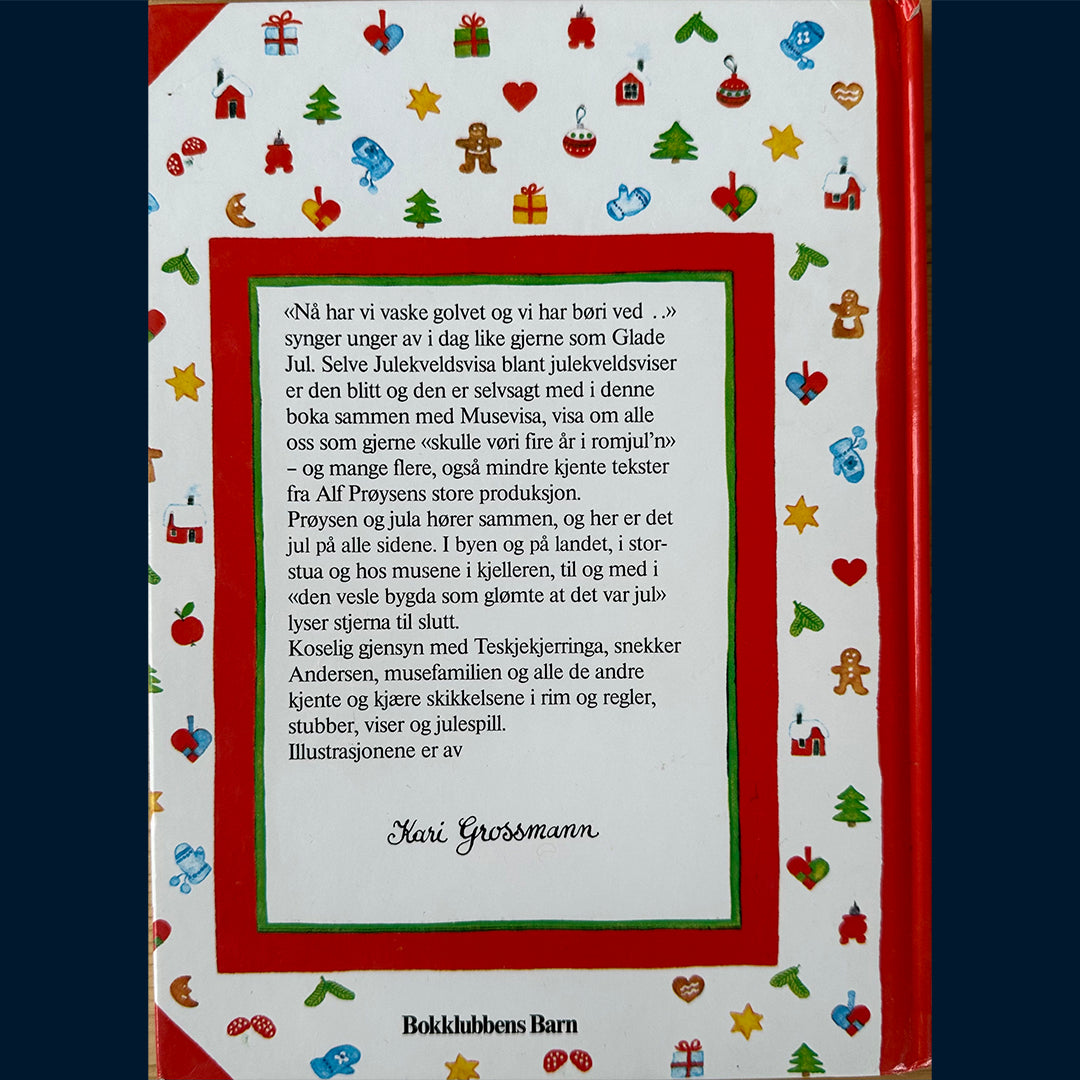 «Nå har vi vaske golvet og vi har børi ved . .»
synger unger av i dag like gjerne som Glade
Jul. Selve Julekveldsvisa blant julekveldsviser
er den blitt og den er selvsagt med i denne
boka sammen med Musevisa, visa om alle
oss som gjerne «skulle vøri fire år i romjul'n»
– og mange flere, også mindre kjente tekster
fra Alf Prøysens store produksjon.
Prøysen og jula hører sammen, og her er det
jul på alle sidene. I byen og på landet, i stor-
stua og hos musene i kjelleren, til og med i
«den vesle bygda som glømte at det var jul»
lyser stjerna til slutt.
Koselig gjensyn med Teskjekjerringa, snekker
Andersen, musefamilien og alle de andre
kjente og kjære skikkelsene i rim og regler,
stubber, viser og julespill.
Illustrasjonene er av
Kari Grossmann
Bokklubbens Barn